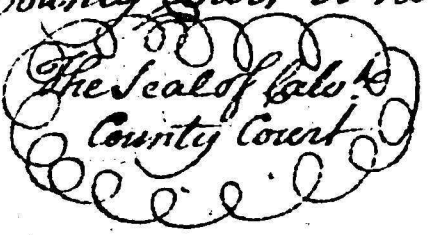 The Seal of Calv.t
County Court